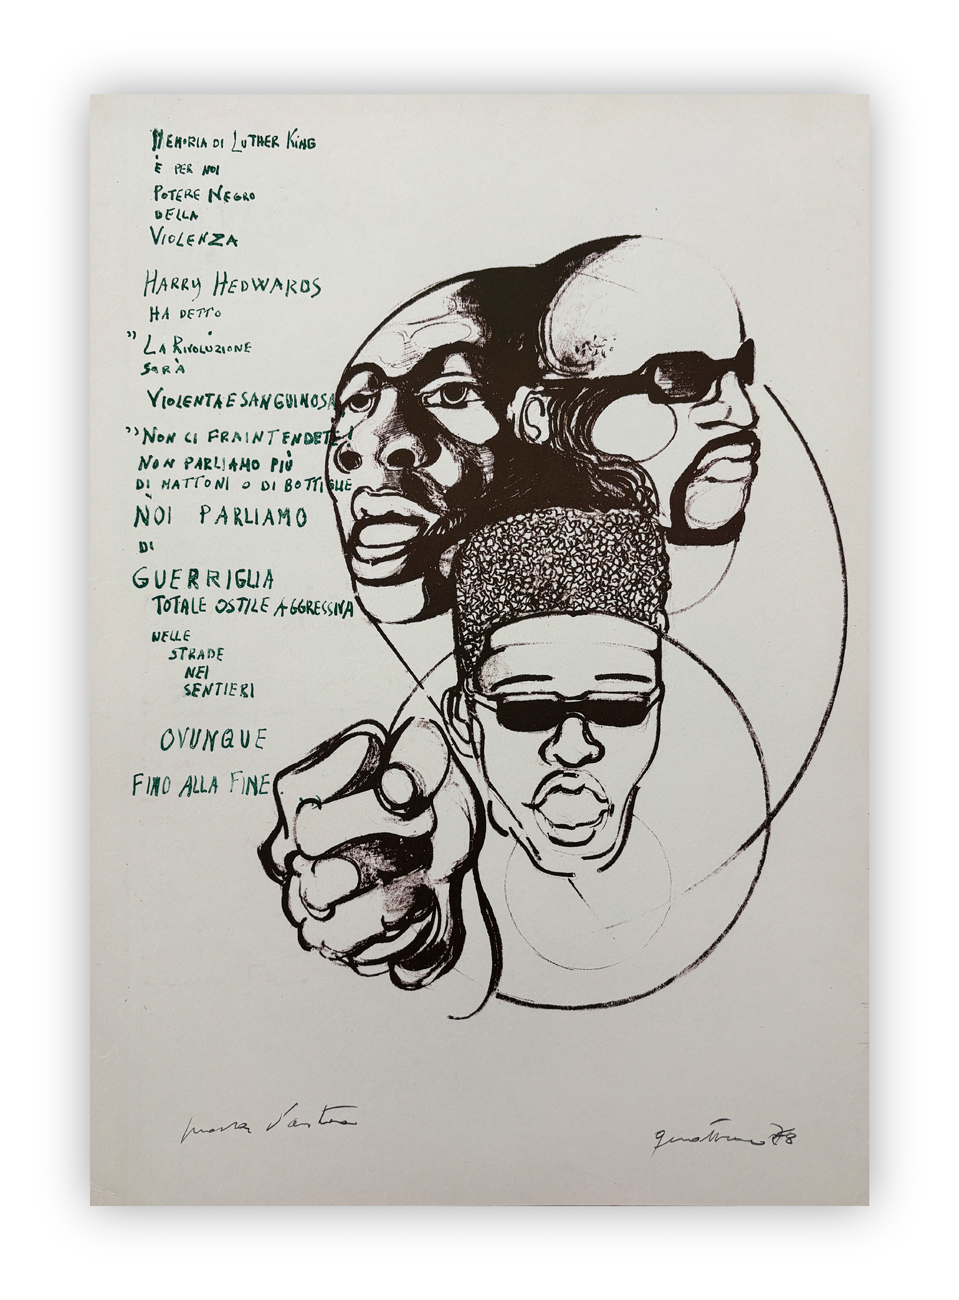 MEMORIA DI LUTHER KING
È PER NOI
POTERE NEGRO
DELLA
VIOLENZA
HARRY HEDWARDS
HA DETTO
" LA RIVOLUZIONE
SARÀ
VIOLENTA E SANGUINOSA
" NON CI FRAINTENDETE!
NON PARLIAMO PIÙ
DI MATTONI O DI BOTTIGLIE
NOI PARLIAMO
DI
GUERRIGLIA
TOTALE OSTILE AGGRESSIVA
NELLE
STRADE
NEI
SENTIERI
OVUNQUE
FINO ALLA FINE.
prova d'autore